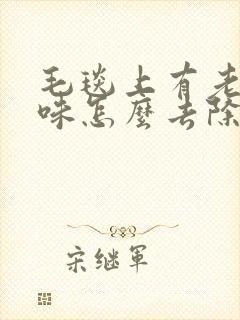 毛毯上有老
味怎麼去除
宋继軍